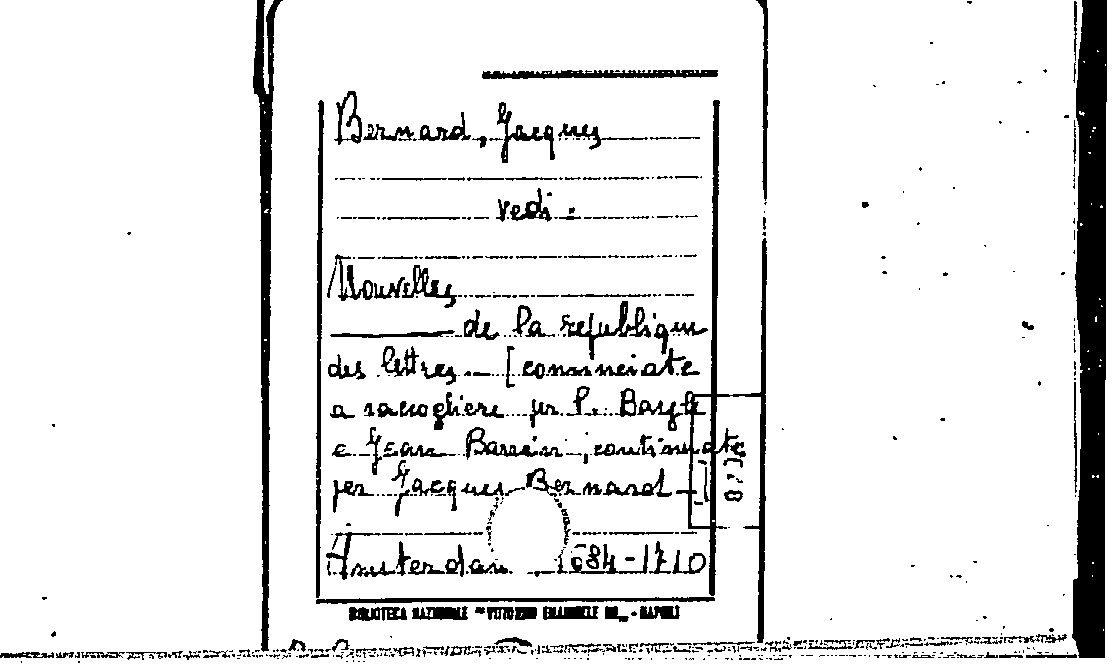 Bernard, Jacques
vedi:
Nouvelles
de la republique
des lettres. — [cominciate
a raccogliere per P. Bayle
e Jean Barrin, continuate
per Jacques Bernard —]
Amsterdam 1684-1710
BIBLIOTECA NAZIONALE "VITTORIO EMANUELE III" - NAPOLI